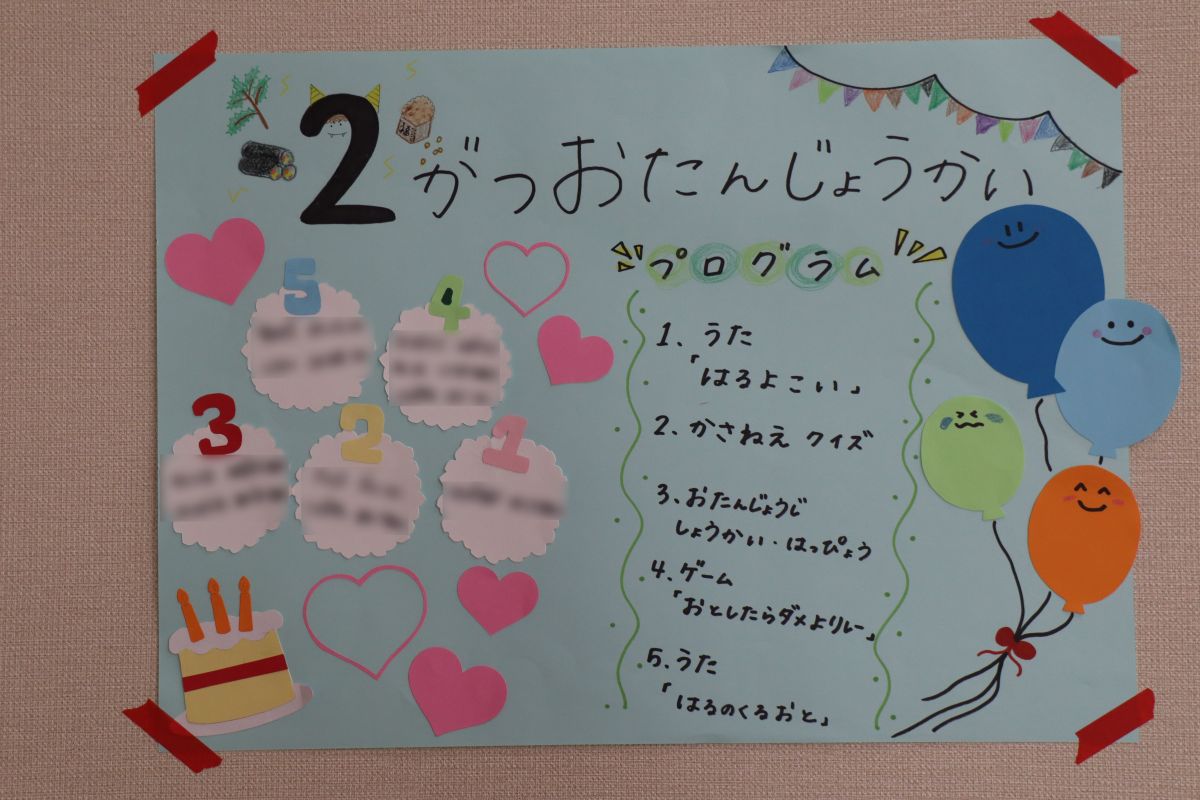 2がつおたんじょうかい
プログラム
5
4
3
2
1
1、うた
「はるよこい」
2、かさねえ クイズ
3、おたんじょうじ
しょうかい・はっぴょう
4、ゲーム
「おとしたらダメよリレー」
5、うた
「はるのくるおと」